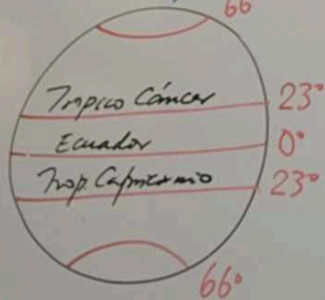 66°
Tropico Cáncer 23°
Ecuador 0°
Trop. Capricornio 23°
66°